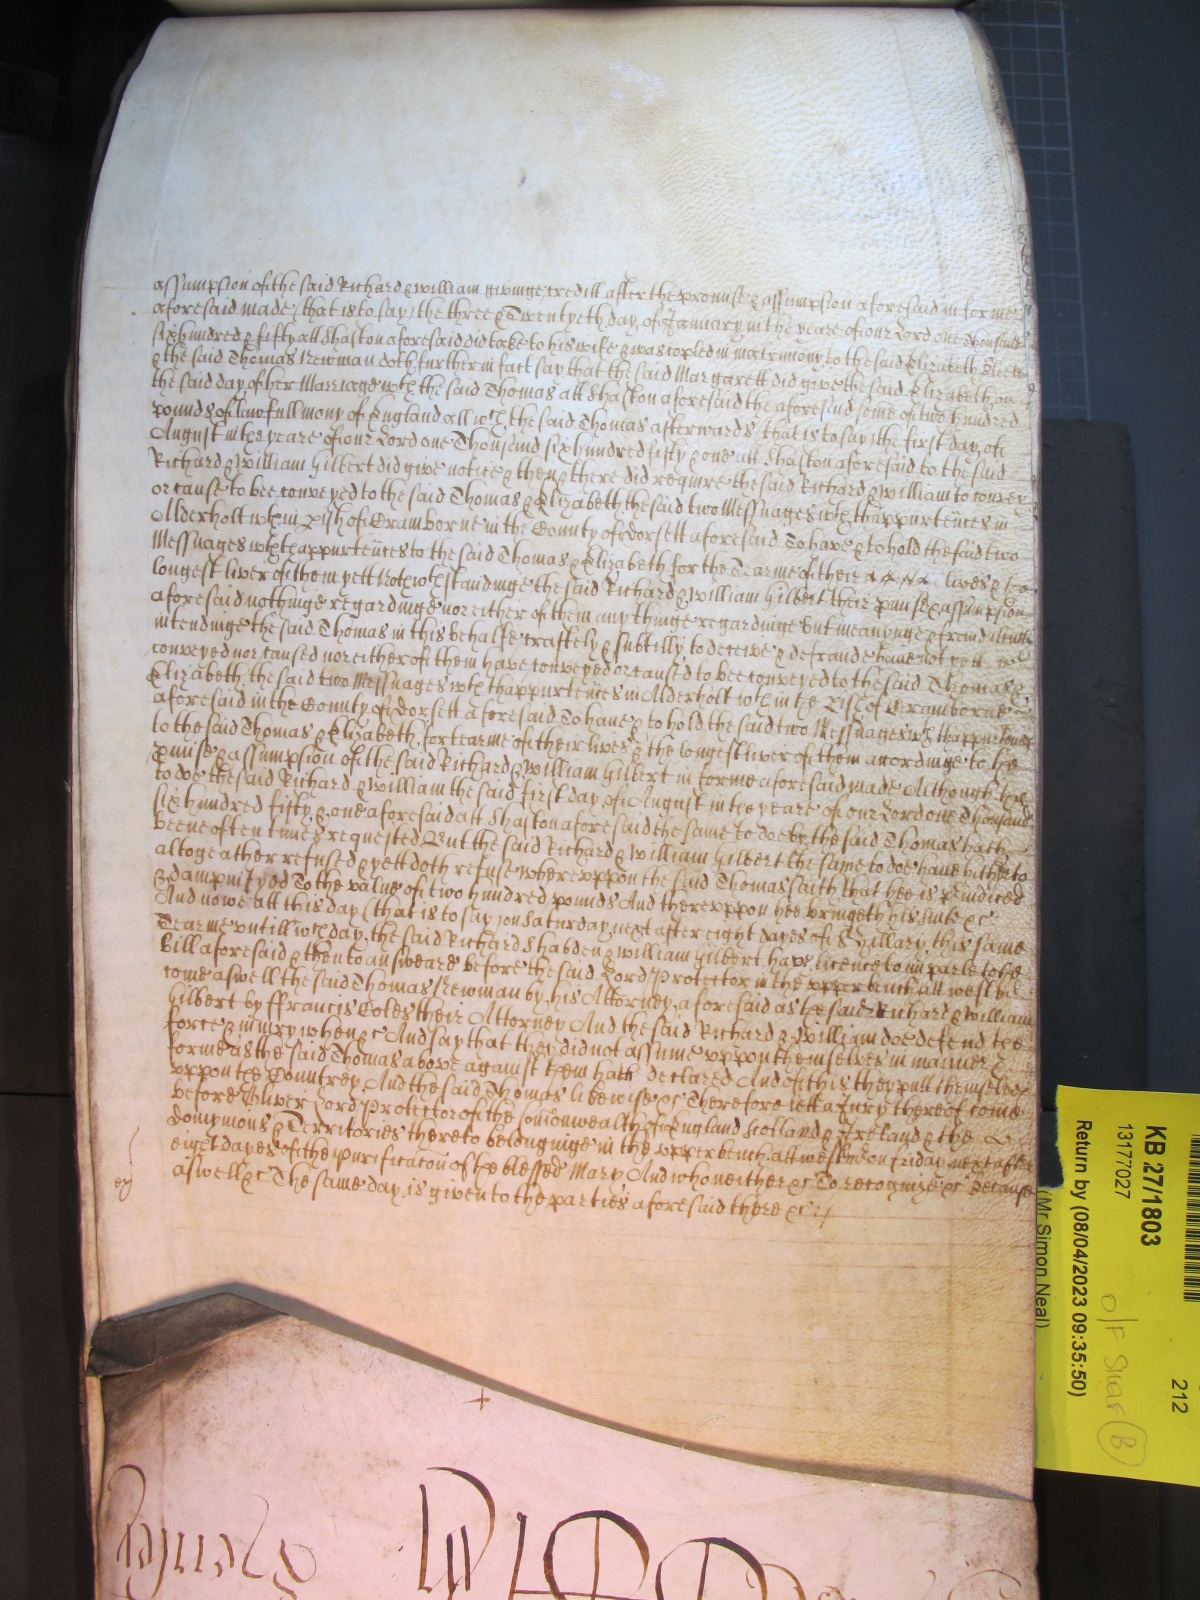 assumpsion of the said Richard & william givinge creditt after the promise & assumpsion aforesaid in forme
aforesaid made (that is to say) the three & Twentyeth day of January in the yeare of our Lord one Thousand
six hundred & fifty att Shaston aforesaid did take to his wife & was copled in matrimony to the said Elizabeth
& the said Thomas Newman doth further in fact say that the said Margarett did give the said Elizabeth on
the said day of her Marriage wth the said Thomas att Shaston aforesaid the aforesaid some of two hundred
pounds of lawfull mony of England all wch the said Thomas afterwards (that is to say) the first day of
August in the yeare of our Lord one Thousand six hundred fifty & one att Shaston aforesaid to the said
Richard & William Gilbert did give notice & then & there did require the said Richard & william to convey
or cause to bee conveyed to the said Thomas & Elizabeth the said two Messuages wth thappurtences in
Alderholt wthin pish of Cramborne in the County of dorsett aforesaid To have & to hold the said two
Messuages wth thappurtences to the said Thomas & Elizabeth for the Tearme of their lives & the
longest liver of them yett Notwthstandinge the said Richard & William Gilbert their pmise & assumpsion
aforesaid nothinge regardinge nor either of them any thinge regardinge but meanynge & fraudulently
intendinge the said Thomas in this behalfe craftely & subtilly to deceive & defraude have not yett
conveyed nor caused nor either of them have conveyed or caused to bee conveyed to the said Thomas &
Elizabeth the said two Messuages wth thappurtences in Alderholt wthin the Pish of Cramborne
aforesaid in the County of dorsett aforesaid To have & to hold the said two Messuages wth thappurtences
to the said Thomas & Elizabeth for tearme of their lives & the longest liver of them accordinge to the
pmise & assumpsion of the said Richard & William Gilbert in forme aforesaid made Although
to doe the said Richard & William the said first day of August in the yeare of our Lord one Thousand
six hundred fifty & one aforesaid att Shaston aforesaid the same to doe by the said Thomas hath
beene often times requested But the said Richard & William Gilbert the same to doe have hitherto
altogeather refused & yett doth refuse whereuppon the said Thomas saith that hee is prejudiced
& dampnifyed To the value of two hundred pounds And thereuppon hee bringeth his sute &c
And nowe att this day (that is to say) on Saturday next after eight dayes of St Hillary this same
Tearme untill wch day the said Richard & william Gilbert have licence to imparle to the
Bill aforesaid & then to answeare before the said Lord Protector in the upper bench att westm
come aswell the said Thomas Newman by his Attorney aforesaid as the said Richard & William
Gilbert by ffrancis Coles their Attorney And the said Richard & William doe defend the
force & injury when &c And say that they did not assume uppon themselves in manner &
forme as the said Thomas above against them hath declared And of this they putt themselves
uppon the Countrey And the said Thomas likewise &c Therefore lett a Jury thereof come
before Oliver Lord Protector of the Comonwealth of England Scotland & Ireland & the
domynions & Territories thereto belonginge in the upper bench att westm on friday next after
eight dayes of the purificacon of the blessed Mary And who neither &c To recognize &c Because
aswell &c The same day is given to the parties aforesaid there &c
KB 27/1803
13177027
Return by (08/04/2023 09:35:50)
(Mr Simon Neal)
212
B